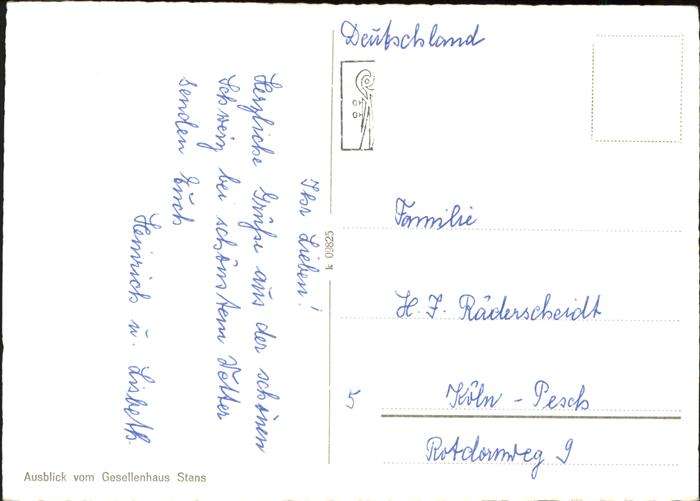 Ihr Lieben!
Herzliche Grüße aus der schönen
Schweiz bei schönstem Wetter
senden Euch
Heinrich u. Lisbeth.
Ausblick vom Gesellenhaus Stans
k 09825
Deutschland
Familie
H. J. Räderscheidt
5 Köln - Pesch
Rotdornweg 9